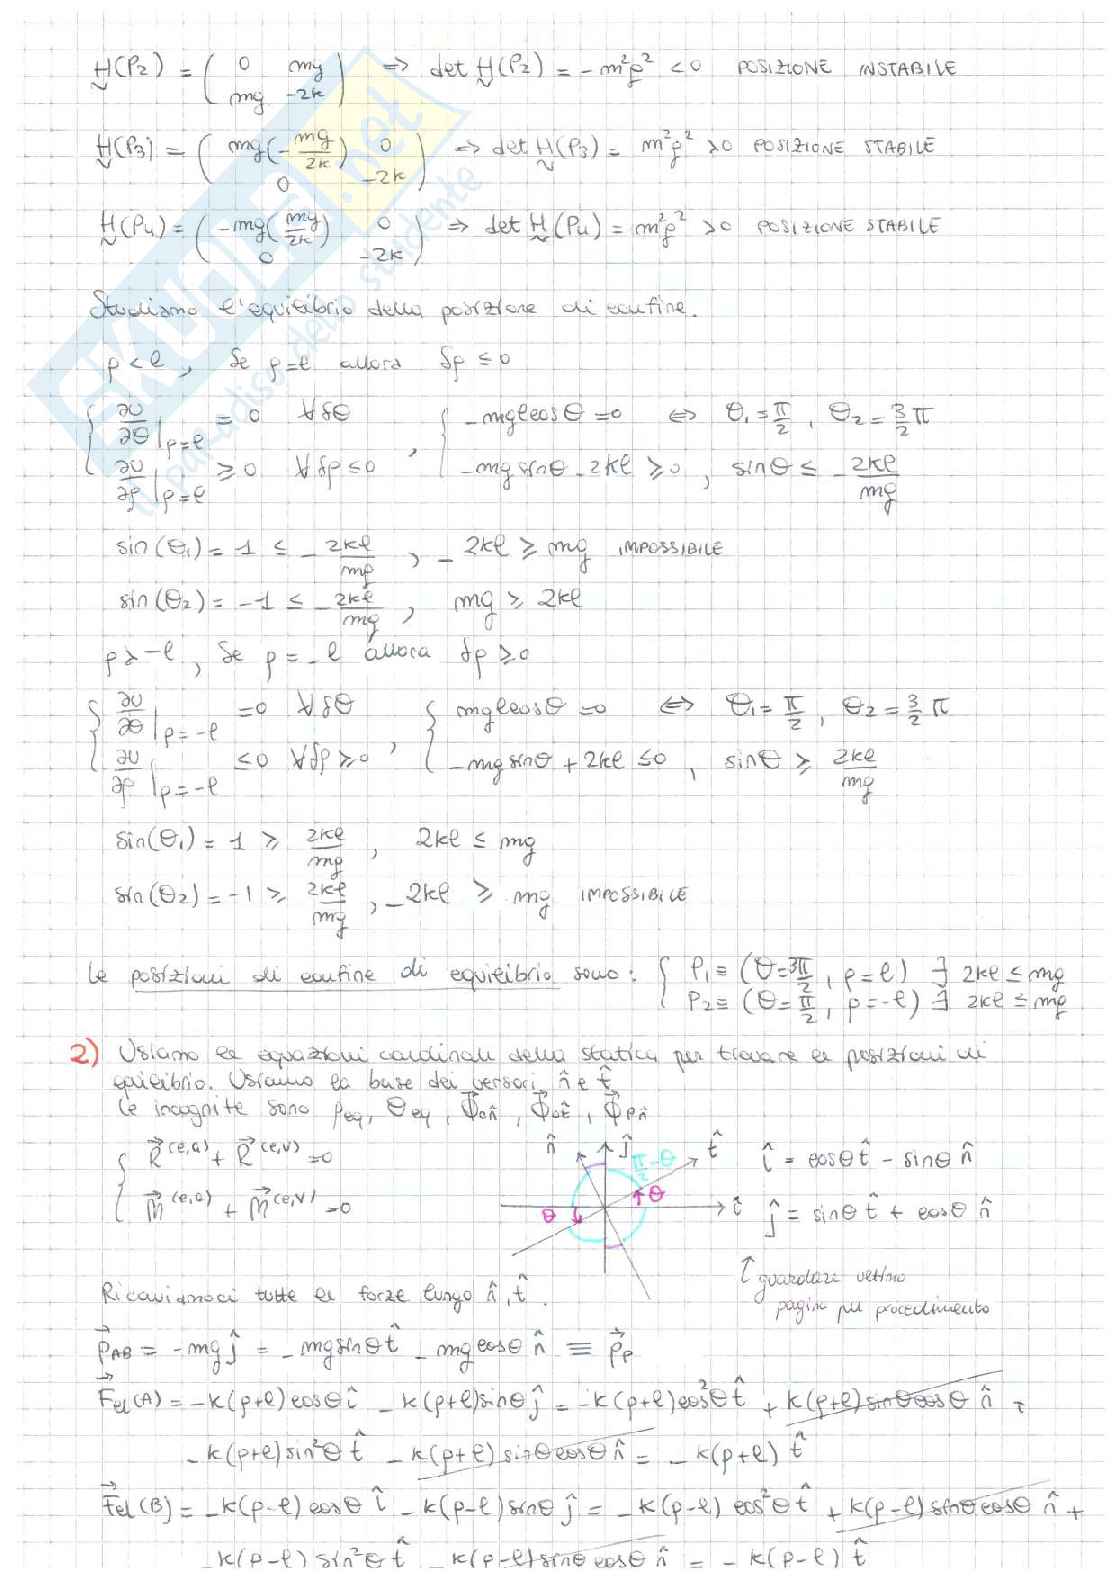 H(P2) = ( 0 mg ; mg -2k ) => det H(P2) = - m²g² < 0 POSIZIONE INSTABILE
H(P3) = ( mg(- mg/2k) 0 ; 0 -2k ) => det H(P3) = m²g² > 0 POSIZIONE STABILE
H(P4) = ( -mg(mg/2k) 0 ; 0 -2k ) => det H(P4) = m²g² > 0 POSIZIONE STABILE
Studiamo l'equilibrio della posizione di confine.
ρ < l, Se ρ=l allora δρ ≤ 0
{ ∂U/∂θ |ρ=l = 0 ∀δθ , { -mglcosθ = 0 <=> θ1 = π/2 , θ2 = 3/2 π
∂U/∂ρ |ρ=l ≥ 0 ∀δρ≤0 -mgsinθ - 2kl ≥ 0 , sinθ ≤ - 2kl/mg
sin(θ1) = 1 ≤ - 2kl/mg , - 2kl ≥ mg IMPOSSIBILE
sin(θ2) = -1 ≤ - 2kl/mg , mg ≥ 2kl
ρ > -l , Se ρ = -l allora δρ ≥ 0
{ ∂U/∂θ |ρ=-l = 0 ∀δθ , { mglcosθ = 0 <=> θ1 = π/2 , θ2 = 3/2 π
∂U/∂ρ |ρ=-l ≤ 0 ∀δρ ≥ 0 -mgsinθ + 2kl ≤ 0 , sinθ ≥ 2kl/mg
sin(θ1) = 1 ≥ 2kl/mg , 2kl ≤ mg
sin(θ2) = -1 ≥ 2kl/mg , -2kl ≥ mg IMPOSSIBILE
Le posizioni di confine di equilibrio sono : { P1 ≡ (θ = 3π/2 , ρ = l) ∃ 2kl ≤ mg
P2 ≡ (θ = π/2 , ρ = -l) ∃ 2kl ≤ mg
2) Usiamo le equazioni cardinali della statica per trovare le posizioni di
equilibrio. Usiamo la base dei versori n̂ e t̂.
Le incognite sono ρeq, θeq, Φ⃗on̂ , Φ⃗ot̂ , Φ⃗pn̂
{ R⃗(e,a) + R⃗(e,v) = 0
M⃗(e,a) + M⃗(e,v) = 0
n̂ ĵ π/2 - θ t̂
θ θ î
î = cosθ t̂ - sinθ n̂
ĵ = sinθ t̂ + cosθ n̂
↑ guardare ultima
pagina per procedimento
Ricaviamoci tutte le forze lungo n̂, t̂.
p⃗AB = -mg ĵ = -mgsinθ t̂ - mgcosθ n̂ ≡ p⃗P
F⃗el(A) = -k(ρ+l)cosθ î - k(ρ+l)sinθ ĵ = -k(ρ+l)cos²θ t̂ + k(ρ+l)sinθcosθ n̂ +
-k(ρ+l)sin²θ t̂ - k(ρ+l)sinθcosθ n̂ = -k(ρ+l) t̂
F⃗el(B) = -k(ρ-l)cosθ î - k(ρ-l)sinθ ĵ = -k(ρ-l)cos²θ t̂ + k(ρ-l)sinθcosθ n̂ +
-k(ρ-l)sin²θ t̂ - k(ρ-l)sinθcosθ n̂ = -k(ρ-l) t̂
SKUOLA.net
il paradiso dello studente